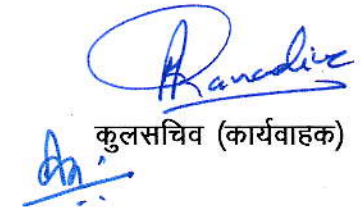 Ranadive
कुलसचिव (कार्यवाहक)